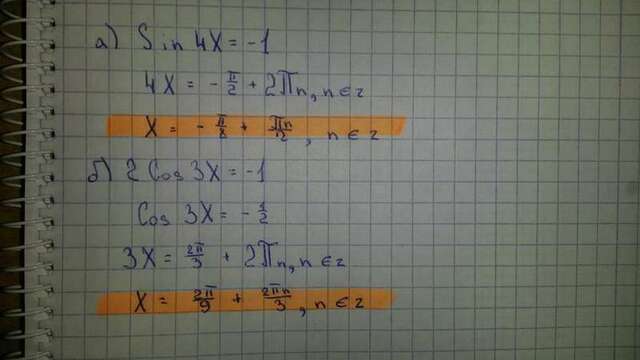 а) Sin 4X = -1
4X = - π/2 + 2πn, n ∈ z
X = - π/8 + πn/2, n ∈ z
б) 2 Cos 3X = -1
Cos 3X = - 1/2
3X = 2π/3 + 2πn, n ∈ z
X = 2π/9 + 2πn/3, n ∈ z